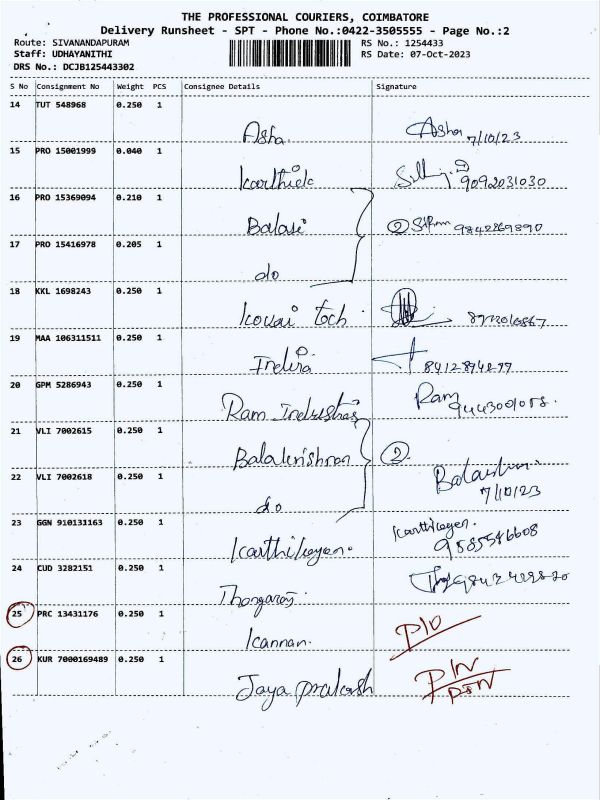 THE PROFESSIONAL COURIERS, COIMBATORE
Delivery Runsheet - SPT - Phone No.:0422-3505555 - Page No.:2
Route: SIVANANDAPURAM RS No.: 1254433
Staff: UDHAYANITHI RS Date: 07-Oct-2023
DRS No.: DCJB125443302
S No Consignment No Weight PCS Consignee Details Signature
14 TUT 548968 0.250 1
Asha Asha 7/10/23
15 PRO 15001999 0.040 1
Karthick 9092031030
16 PRO 15369094 0.210 1
Balaji 2 9842269890
17 PRO 15416978 0.205 1
do
18 KKL 1698243 0.250 1
Kovai Tech
19 MAA 106311511 0.250 1
Indira
20 GPM 5286943 0.250 1
Ram Industries Ram
21 VLI 7002615 0.250 1
Balakrishnan 2
22 VLI 7002618 0.250 1
do 7/10/23
23 GGN 910131163 0.250 1
Karthikeyan. Karthikeyan. 9585586608
24 CUD 3282151 0.250 1
Thangaraj
25 PRC 13431176 0.250 1
Kannan.
26 KUR 7000169489 0.250 1
Jaya prakash
SIVANANDAPURAM